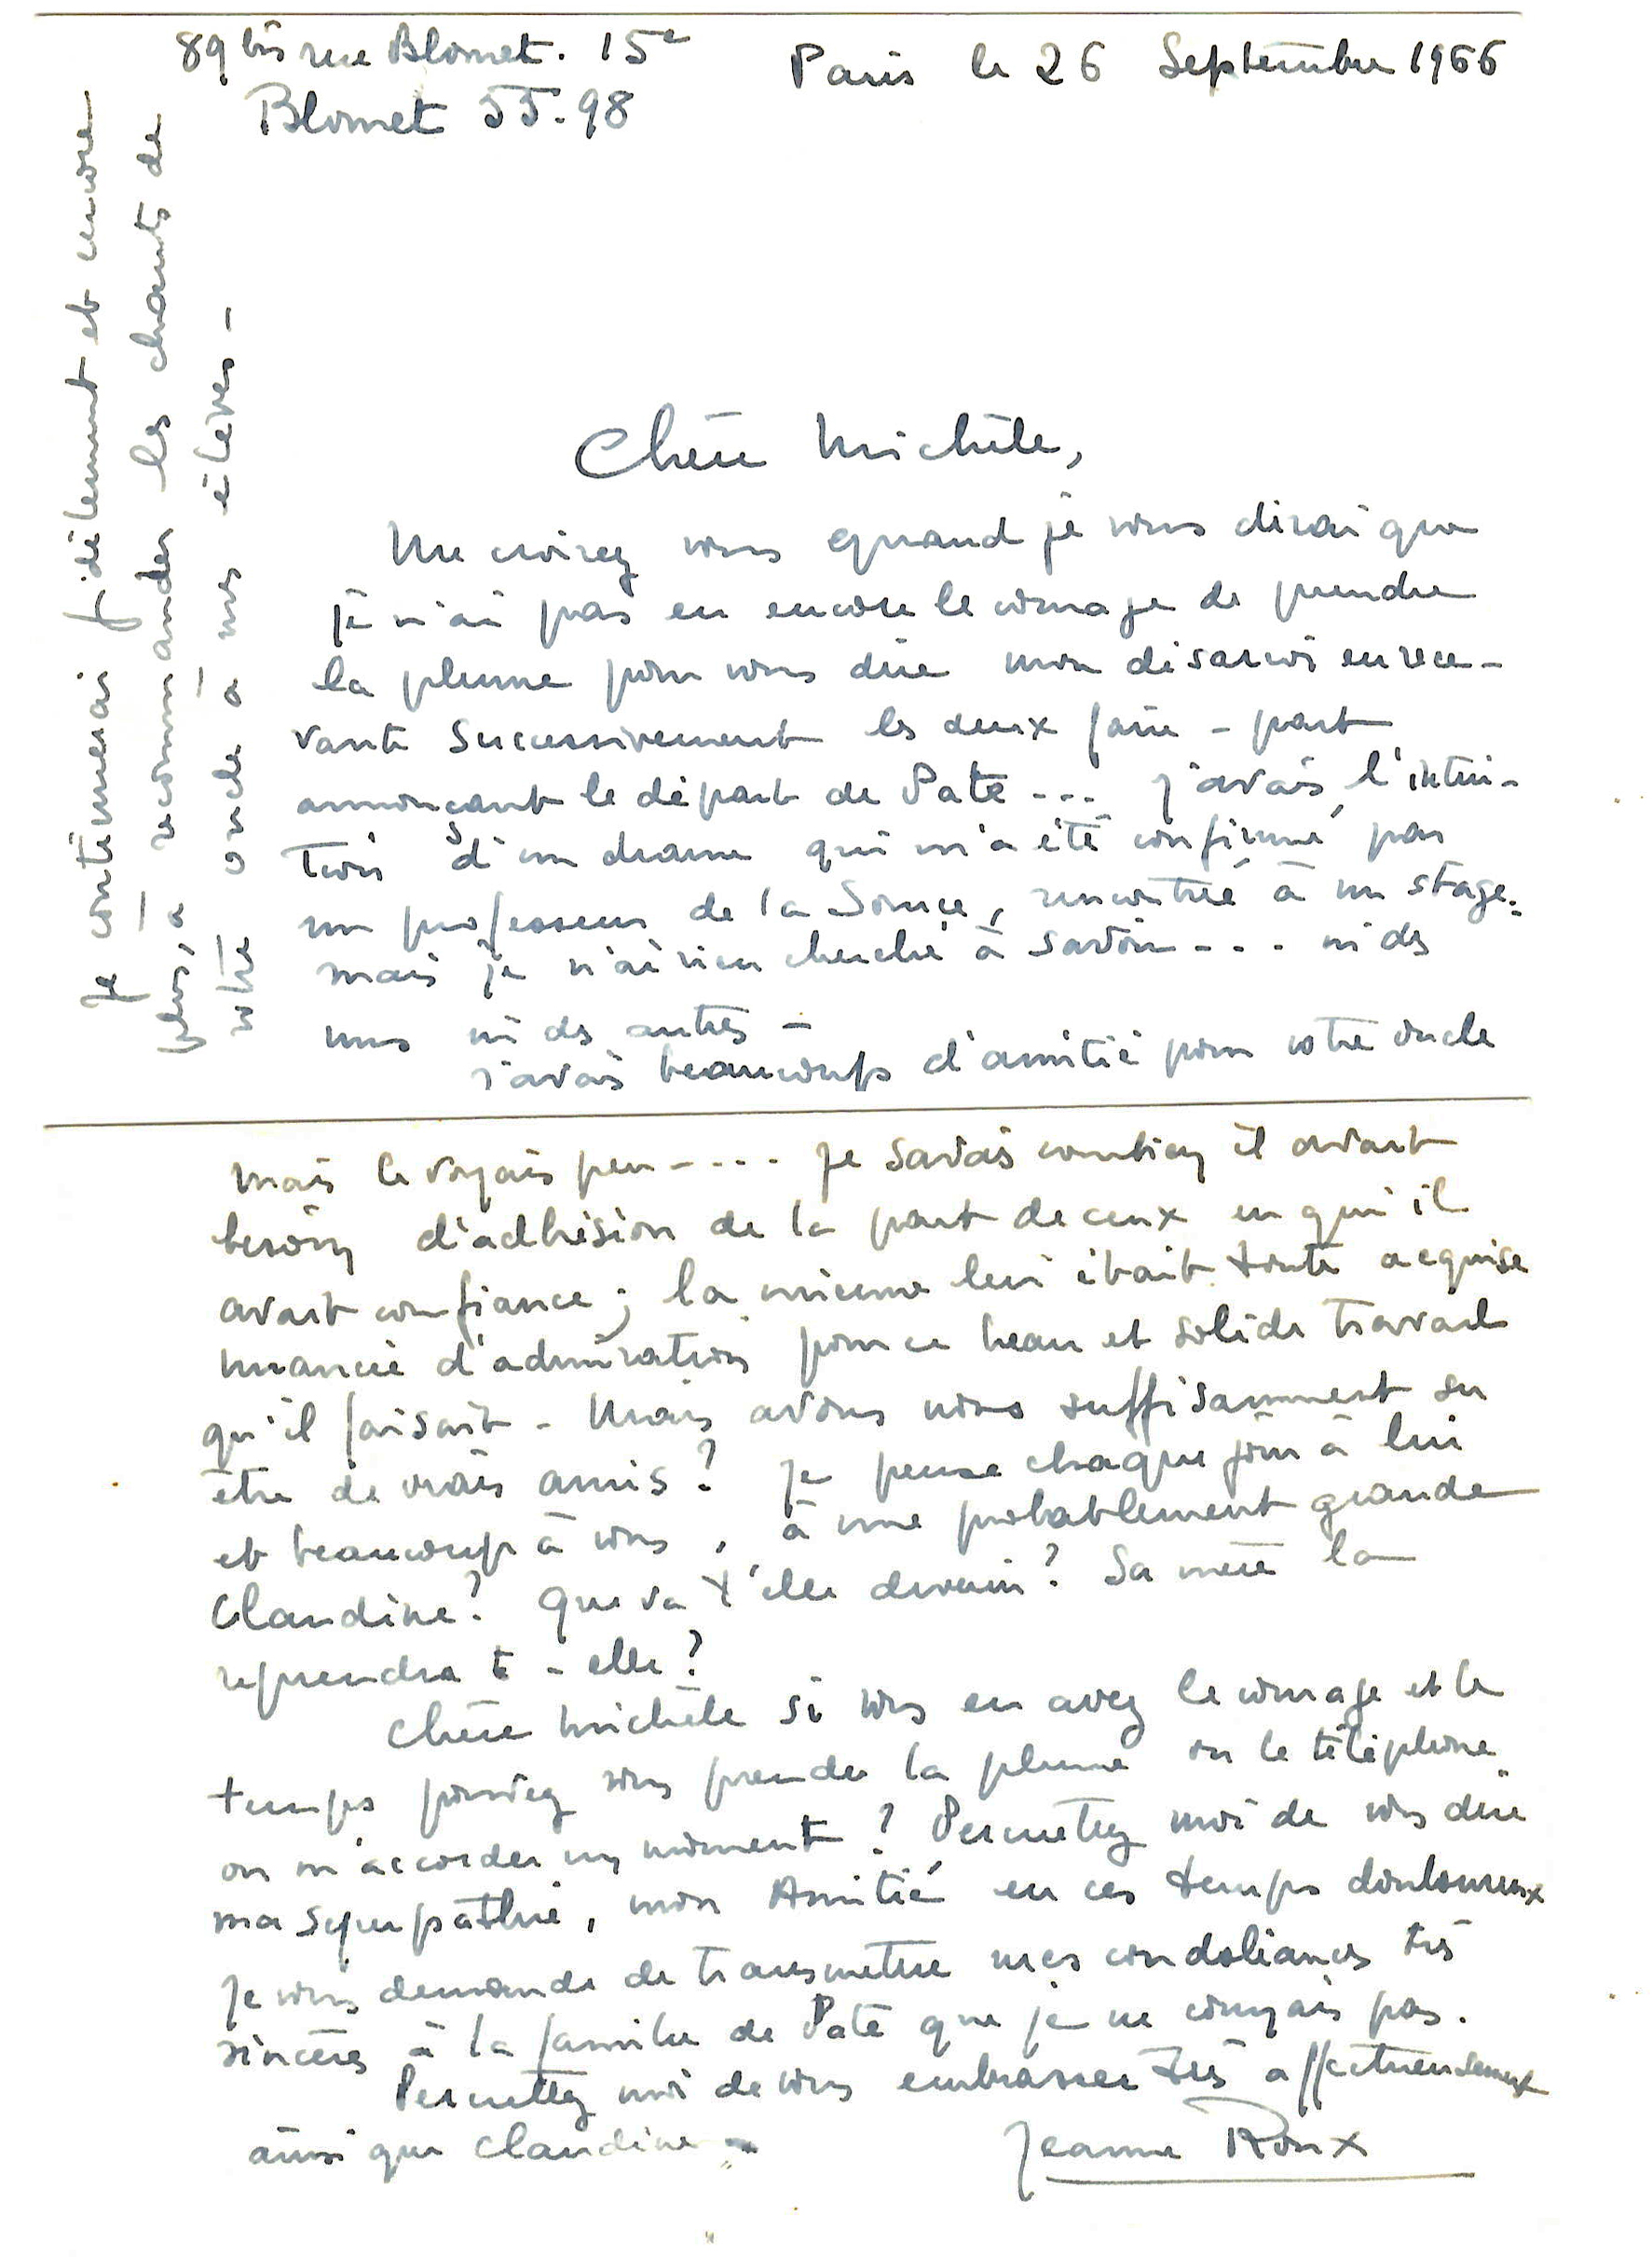 89 bis rue Blomet. 15e
Blomet 55.98
Paris le 26 Septembre 1966
Chère Michèle,
Me croirez vous quand je vous dirai que
je n'ai pas eu encore le courage de prendre
la plume pour vous dire mon désarroi en rece-
vant successivement les deux faire-part
annonçant le départ de Pate... J'avais l'intui-
tion d'un drame qui m'a été confirmé par
un professeur de la Source, rencontré à un stage.
mais je n'ai rien cherché à savoir... ni des
uns ni des autres -
J'avais beaucoup d'amitié pour votre oncle
mais le voyais peu.... Je savais combien il avait
besoin d'adhésion de la part de ceux en qui il
avait confiance ; la mienne lui était toute acquise
nuancée d'admiration pour ce beau et solide travail
qu'il faisait - Mais avons nous suffisamment su
être de vrais amis ? Je pense chaque jour à lui
et beaucoup à vous, à une probablement grande
Claudine ? Que va t'elle devenir ? Sa mère la
reprendra t-elle ?
Chère Michèle si vous en avez le courage et le
temps pourriez vous prendre la plume ou le téléphone
ou m'accorder un moment ? Permettez moi de vous dire
ma sympathie, mon Amitié en ces temps douloureux
Je vous demande de transmettre mes condoléances très
sincères à la famille de Pate que je ne connais pas.
Permettez moi de vous embrasser très affectueusement
ainsi que Claudine -
Jeanne Roux
Je continuerai fidèlement et encore
plus, à recommander les chants de
votre oncle à mes élèves -